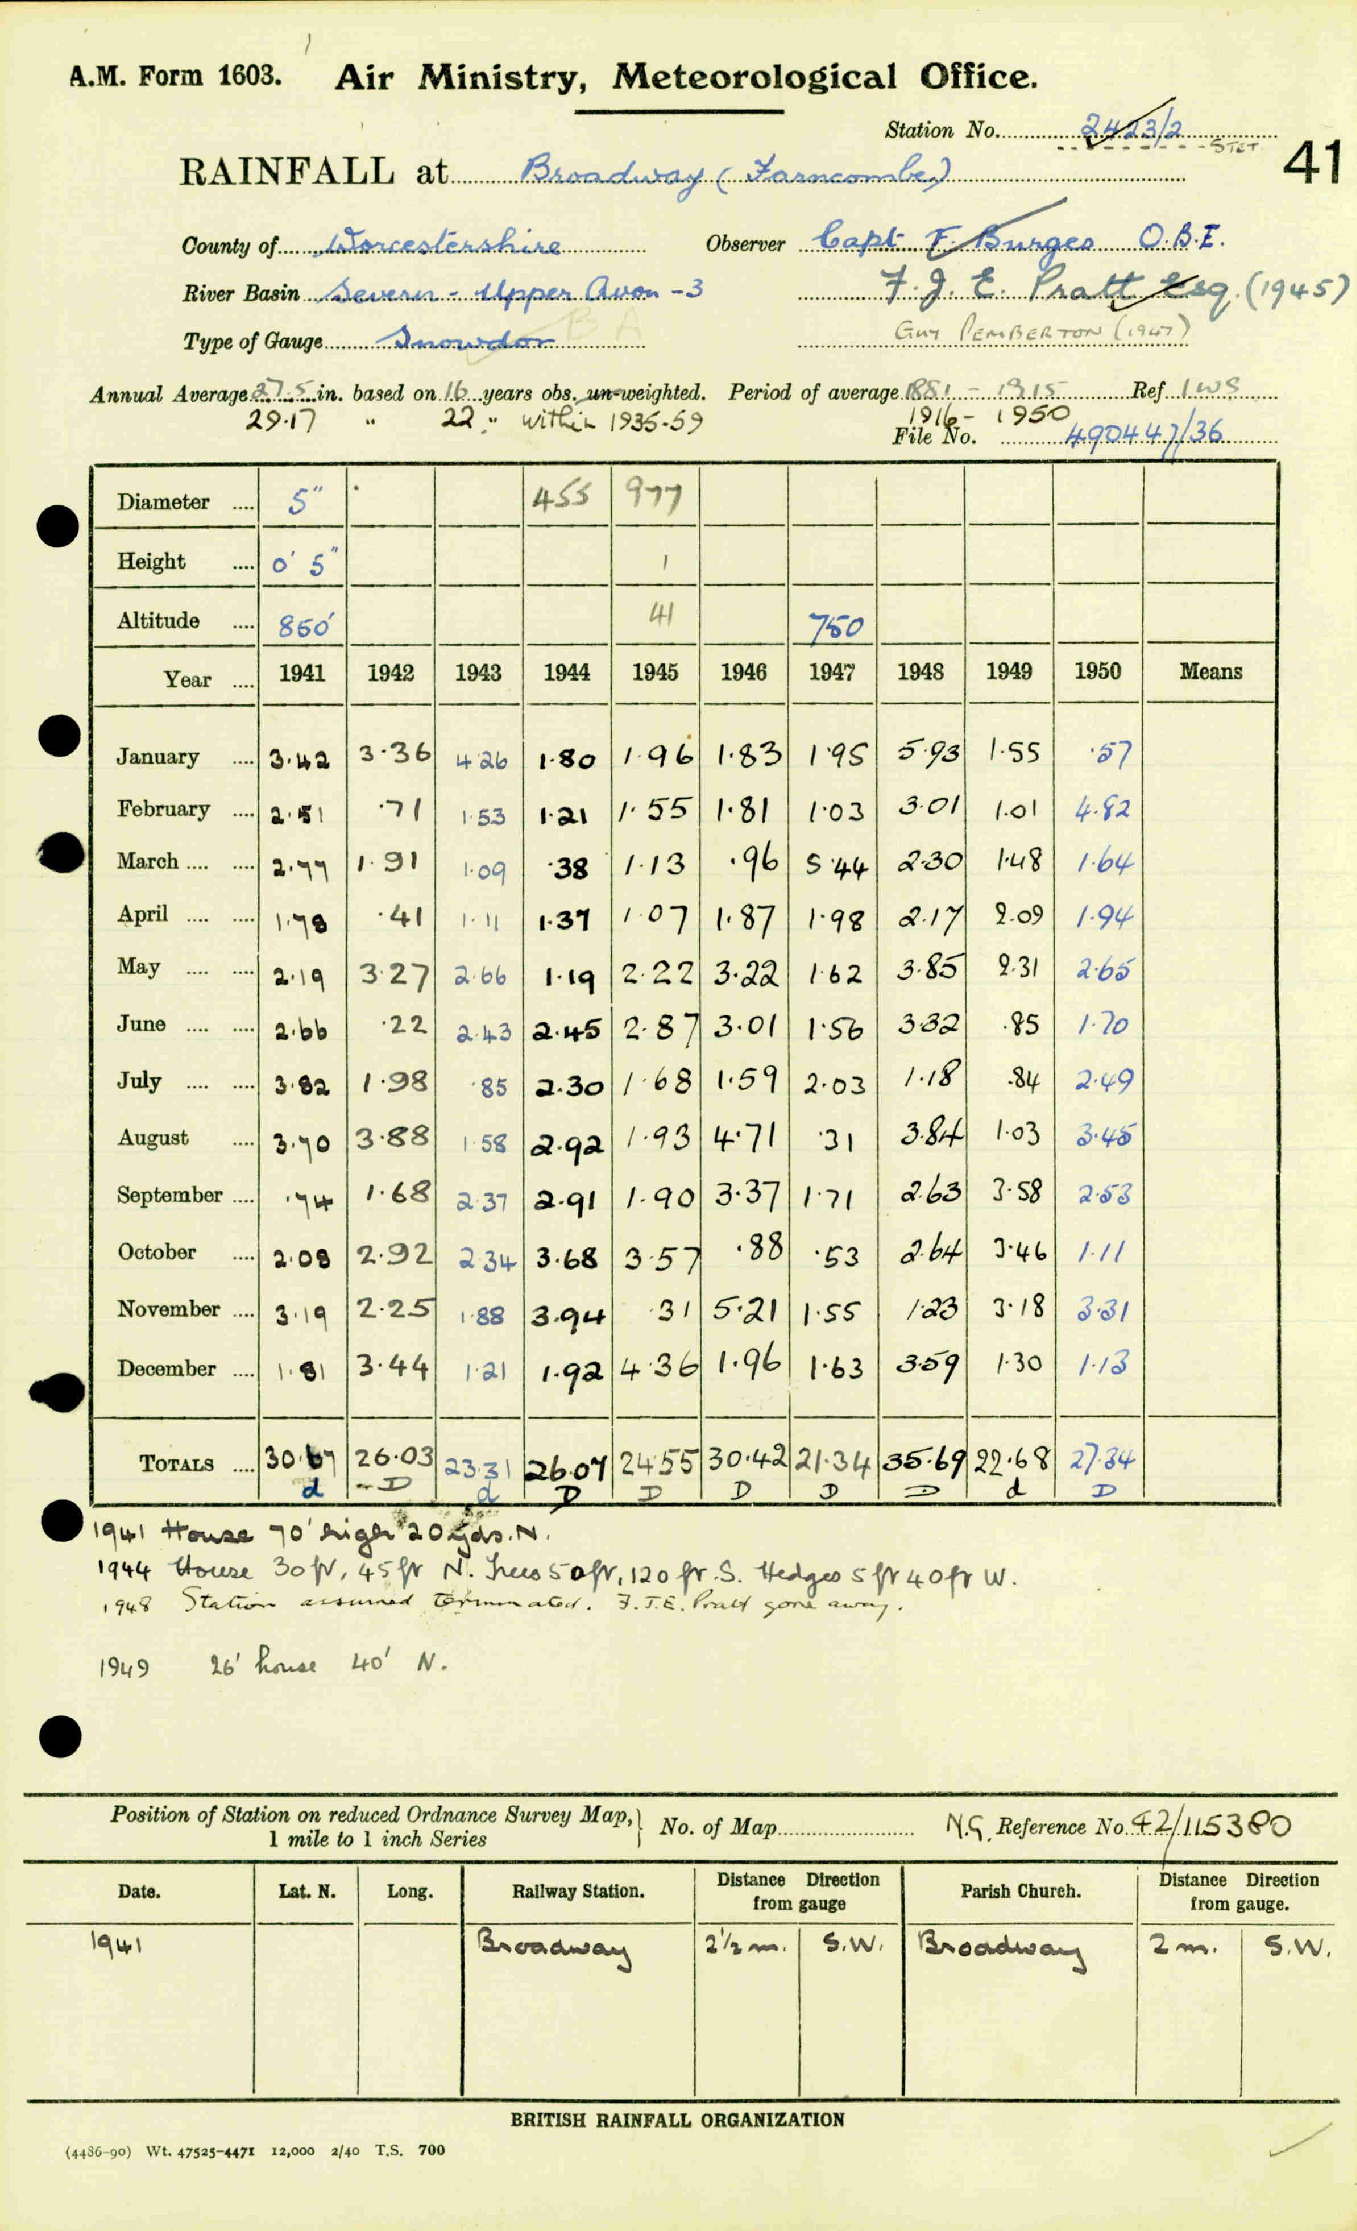 A.M. Form 1603. Air Ministry, Meteorological Office.
Station No. 2423/2
STET
41
RAINFALL at Broadway (Farncombe)
County of Worcestershire Observer Capt F. Burges O.B.E.
River Basin Severn - Upper Avon -3 F. J. E. Pratt Esq. (1945)
Type of Gauge Snowdon GUY PEMBERTON (1947)
Annual Average 27.5 in. based on 16 years obs. un-weighted. Period of average 1881 - 1915 Ref IWS
29.17 " 22 " within 1935-59 1916 - 1950
File No. 490447/36
Diameter .... 5" 455 977
Height .... 0' 5" 1
Altitude .... 850' 41 750
Year .... 1941 1942 1943 1944 1945 1946 1947 1948 1949 1950 Means
January .... 3.42 3.36 4.26 1.80 1.96 1.83 1.95 5.93 1.55 .57
February .... 2.51 .71 1.53 1.21 1.55 1.81 1.03 3.01 1.01 4.82
March .... .... 2.77 1.91 1.09 .38 1.13 .96 5.44 2.30 1.48 1.64
April .... .... 1.78 .41 1.11 1.37 1.07 1.87 1.98 2.17 2.09 1.94
May .... .... 2.19 3.27 2.66 1.19 2.22 3.22 1.62 3.85 2.31 2.65
June .... .... 2.66 .22 2.43 2.45 2.87 3.01 1.56 3.32 .85 1.70
July .... .... 3.82 1.98 .85 2.30 1.68 1.59 2.03 1.18 .84 2.49
August .... 3.70 3.88 1.58 2.92 1.93 4.71 .31 3.84 1.03 3.45
September .... .74 1.68 2.37 2.91 1.90 3.37 1.71 2.63 3.58 2.53
October .... 2.08 2.92 2.34 3.68 3.57 .88 .53 2.64 3.46 1.11
November .... 3.19 2.25 1.88 3.94 .31 5.21 1.55 1.23 3.18 3.31
December .... 1.81 3.44 1.21 1.92 4.36 1.96 1.63 3.59 1.30 1.13
TOTALS .... 30.67 26.03 23.31 26.07 24.55 30.42 21.34 35.69 22.68 27.34
d D d D D D D D d D
1941 House 70' high 20 yds. N.
1944 House 30 ft, 45 ft N. Trees 50 ft, 120 ft S. Hedges 5 ft 40 ft W.
1948 Station assumed terminated. F.J.E. Pratt gone away.
1949 26' house 40' N.
Position of Station on reduced Ordnance Survey Map,} No. of Map N.G. Reference No. 42/115380
1 mile to 1 inch Series
Date. Lat. N. Long. Railway Station. Distance Direction from gauge Parish Church. Distance Direction from gauge.
1941 Broadway 2½ m. S.W. Broadway 2 m. S.W.
BRITISH RAINFALL ORGANIZATION
(4486-90) Wt. 47525-4471 12,000 2/40 T.S. 700